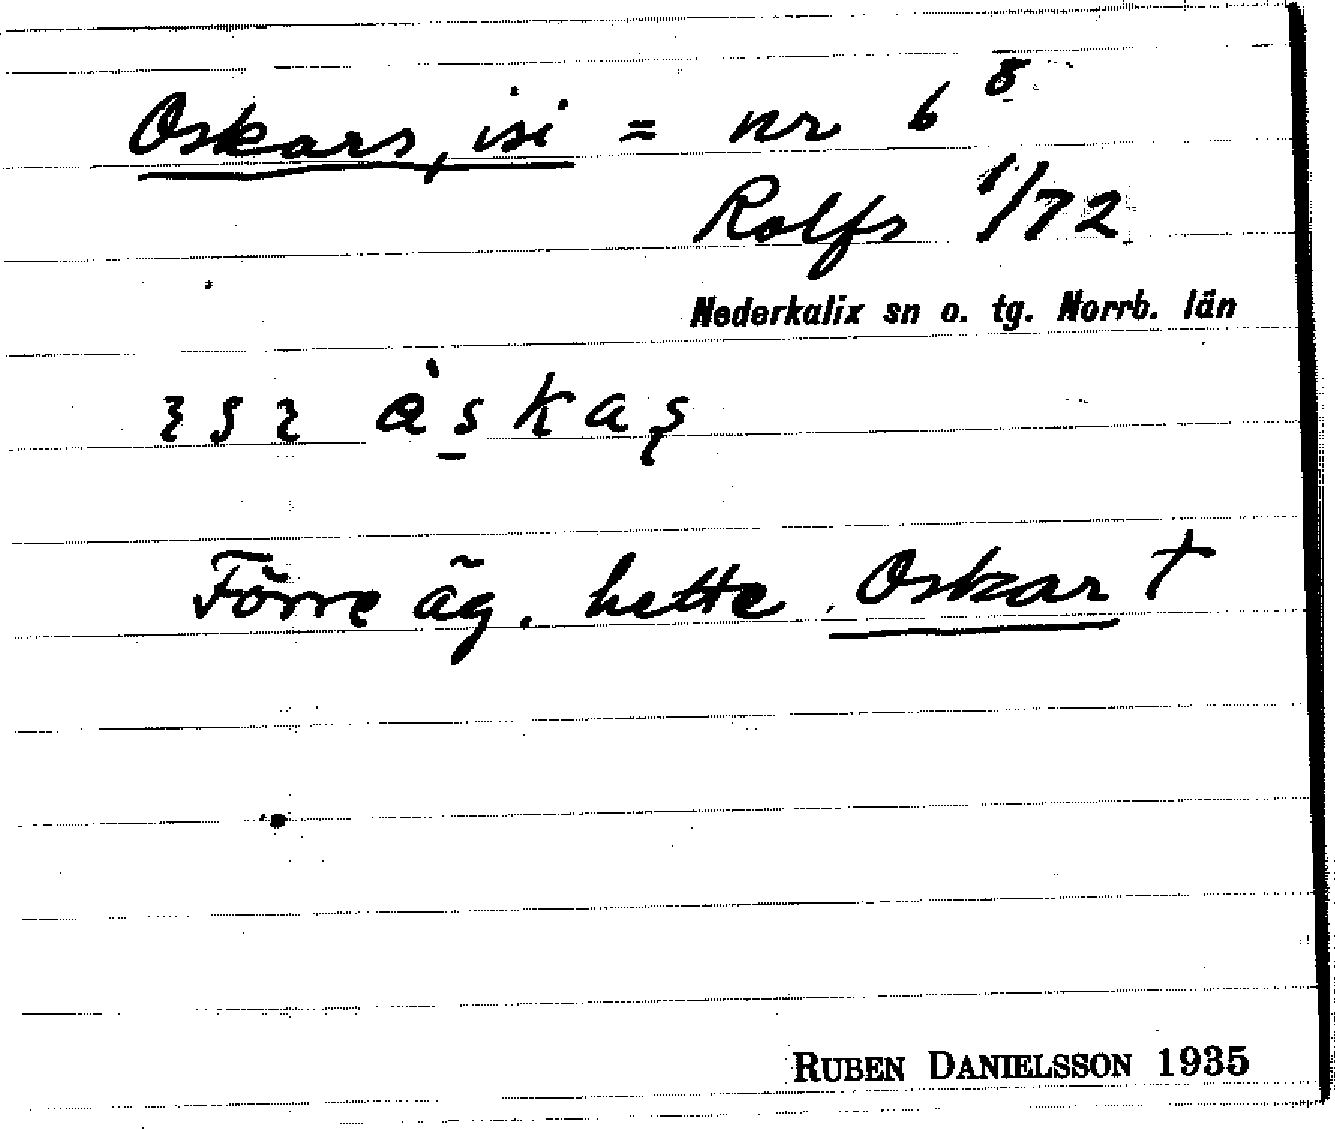 Oskars, isi = nr 6⁸
Rolfs 1/72
Nederkalix sn o. tg. Norrb. län
Förre äg. hette Oskar †
RUBEN DANIELSSON 1935